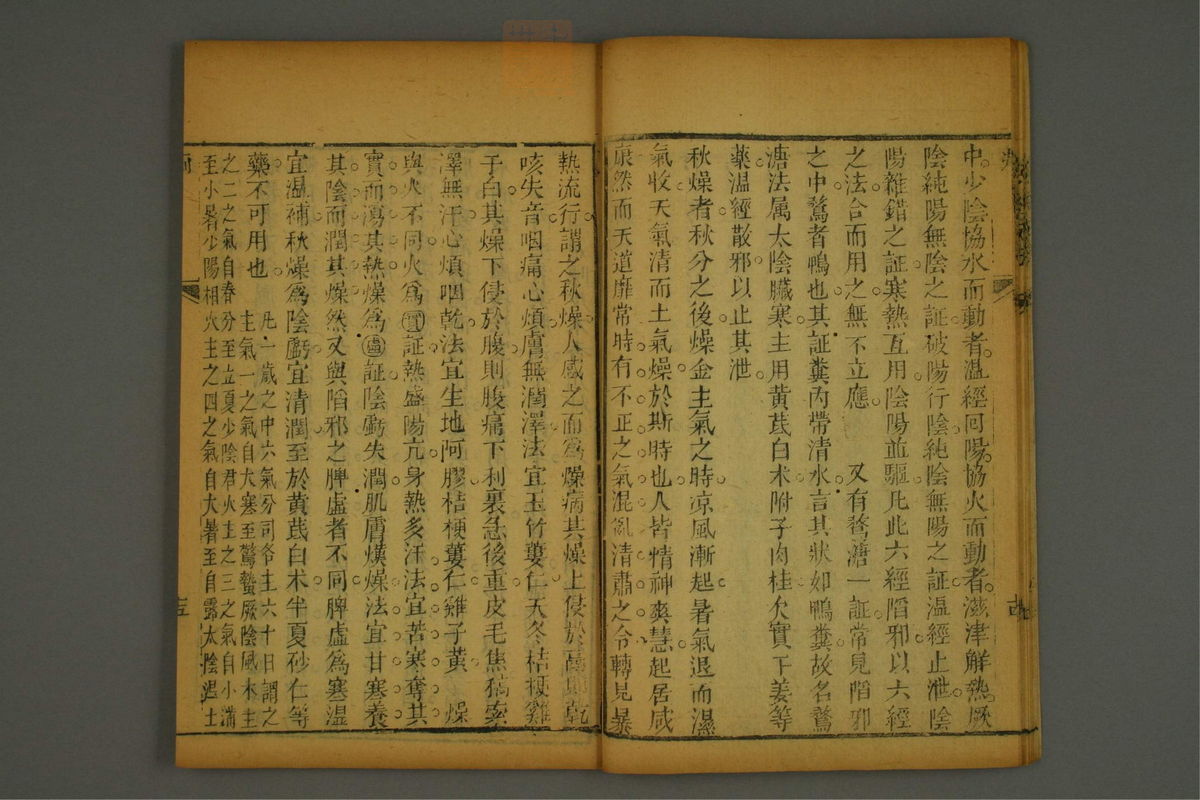 中少陰協水而動者溫經囘陽協火而動者滋津解熱厥
陰純陽無陰之証破陽行陰純陰無陽之証溫經止泄陰
陽雜錯之証寒熱互用陰陽並驅凡此六經陷邪以六經
之法合而用之無不立應　又有鶩溏一証常見陷邪
之中鶩者鴨也其証糞內帶清水言其狀如鴨糞故名鶩
溏法属太陰臟寒主用黄芪白术附子肉桂欠實干姜等
藥溫經散邪以止其泄
秋燥者秋分之後燥金主氣之時凉風漸起暑氣退而濕
氣收天氣清而土氣燥於斯時也人皆情神爽慧起居咸
康然而天道靡常時有不正之氣混亂清肅之令轉見暴
熱流行謂之秋燥人感之而為燥病其燥上侵於高則乾
咳失音咽痛心煩膚無潤澤法宜玉竹蔞仁天冬桔梗雞
子白其燥下侵於腹則腹痛下利裏急後重皮毛焦槁索
澤無汗心煩咽乾法宜生地阿膠桔梗蔞仁雞子黃　燥
與火不同火為實証熱盛陽亢身熱多汗法宜苦寒奪其
實而瀉其熱燥為虛証陰虧失潤肌膚熯燥法宜甘寒養
其陰而潤其燥然又與陷邪之脾虛者不同脾虛為寒濕
宜溫補秋燥為陰虧宜清潤至於黄芪白术半夏砂仁等
藥不可用也　凡一歲之中六氣分司各主六十日謂之
主氣一之氣自大寒至驚蟄厥陰風木主
之二之氣自春分至立夏少陰君火主之三之氣自小滿
至小暑少陽相火主之四之氣自大暑至白露太陰濕土